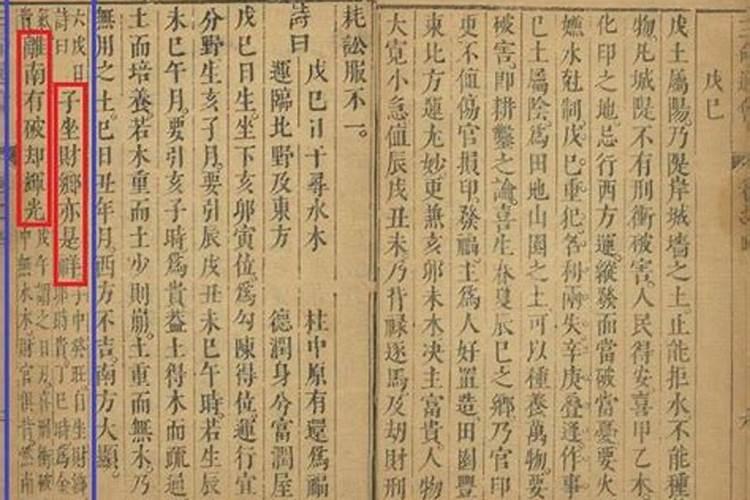 戊巳
戊土屬陽乃隄岸城墻之土止能拒水不能種
物凡城隄不有刑衝破害人民得安喜甲乙木
化印之地忌行西方運縱發而當破當憂要火
嫌水尅制戊巳重犯各利兩失辛庚叠逢作事
巳土屬陰為田地山園之土可以種養萬物要
破害即耕鑿之論喜生春夏辰巳之鄉乃官印
更不值傷官損印發福主為人好置造田園豐
東比方運尤妙更兼亥卯未木决主富貴人物
大寬小急值辰戌丑未乃背祿逐馬及刼財刑
耗訟服不一
戊巳日干尋水木 柱中原有還為福
詩曰
運臨北野及東方 德潤身兮富潤屋
戊巳日生坐下亥卯寅位為勾陳得位運行宜
分野生亥子月要引辰戌丑未巳午時若生辰
未巳午月要引亥子時為貴益土得水而疏通
土而培養若木重而土少則崩土重而無木乃
無用之土巳日丑年月西方不吉南方大顯
六戊日
詩曰
子坐財鄉亦是祥
離南有破却輝光
子中癸旺自坐財鄉
戊午謂之日刃喜刑衝破
卯時貴丁巳時為金
中無水木財官俱背無南